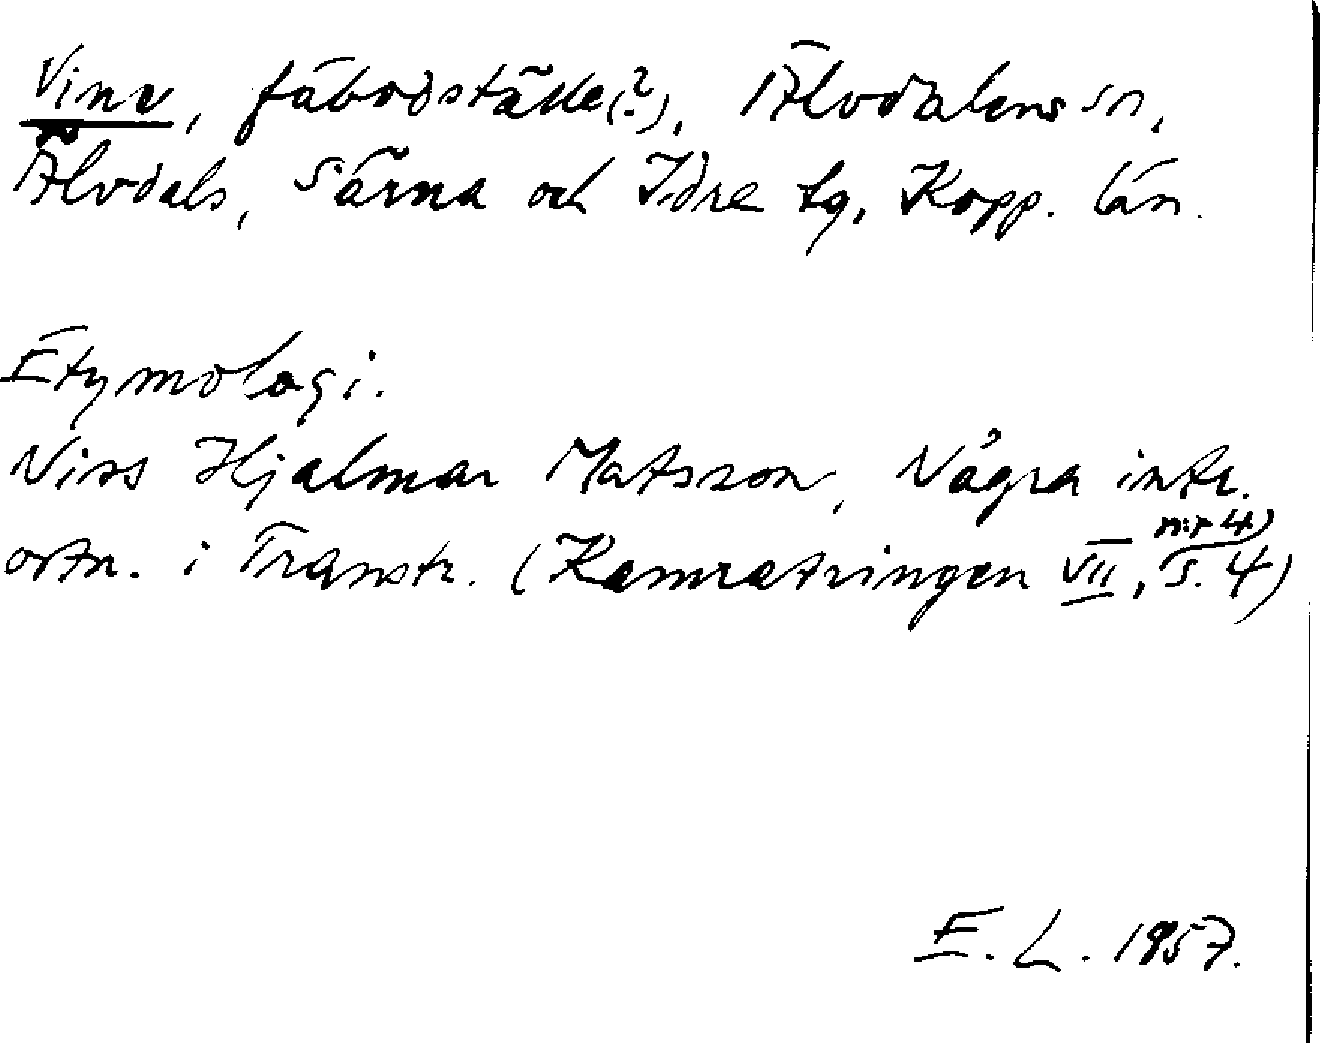 Vine, fäbodställe(?), Älvdalens sn,
Älvdals, Särna och Idre tg, Kopp. län.
Etymologi.
Niss Hjalmar Matsson, Några intr.
ortn. i Transtr. (Kamratringen VII, nr 4, s. 4)
E. L. 1957.